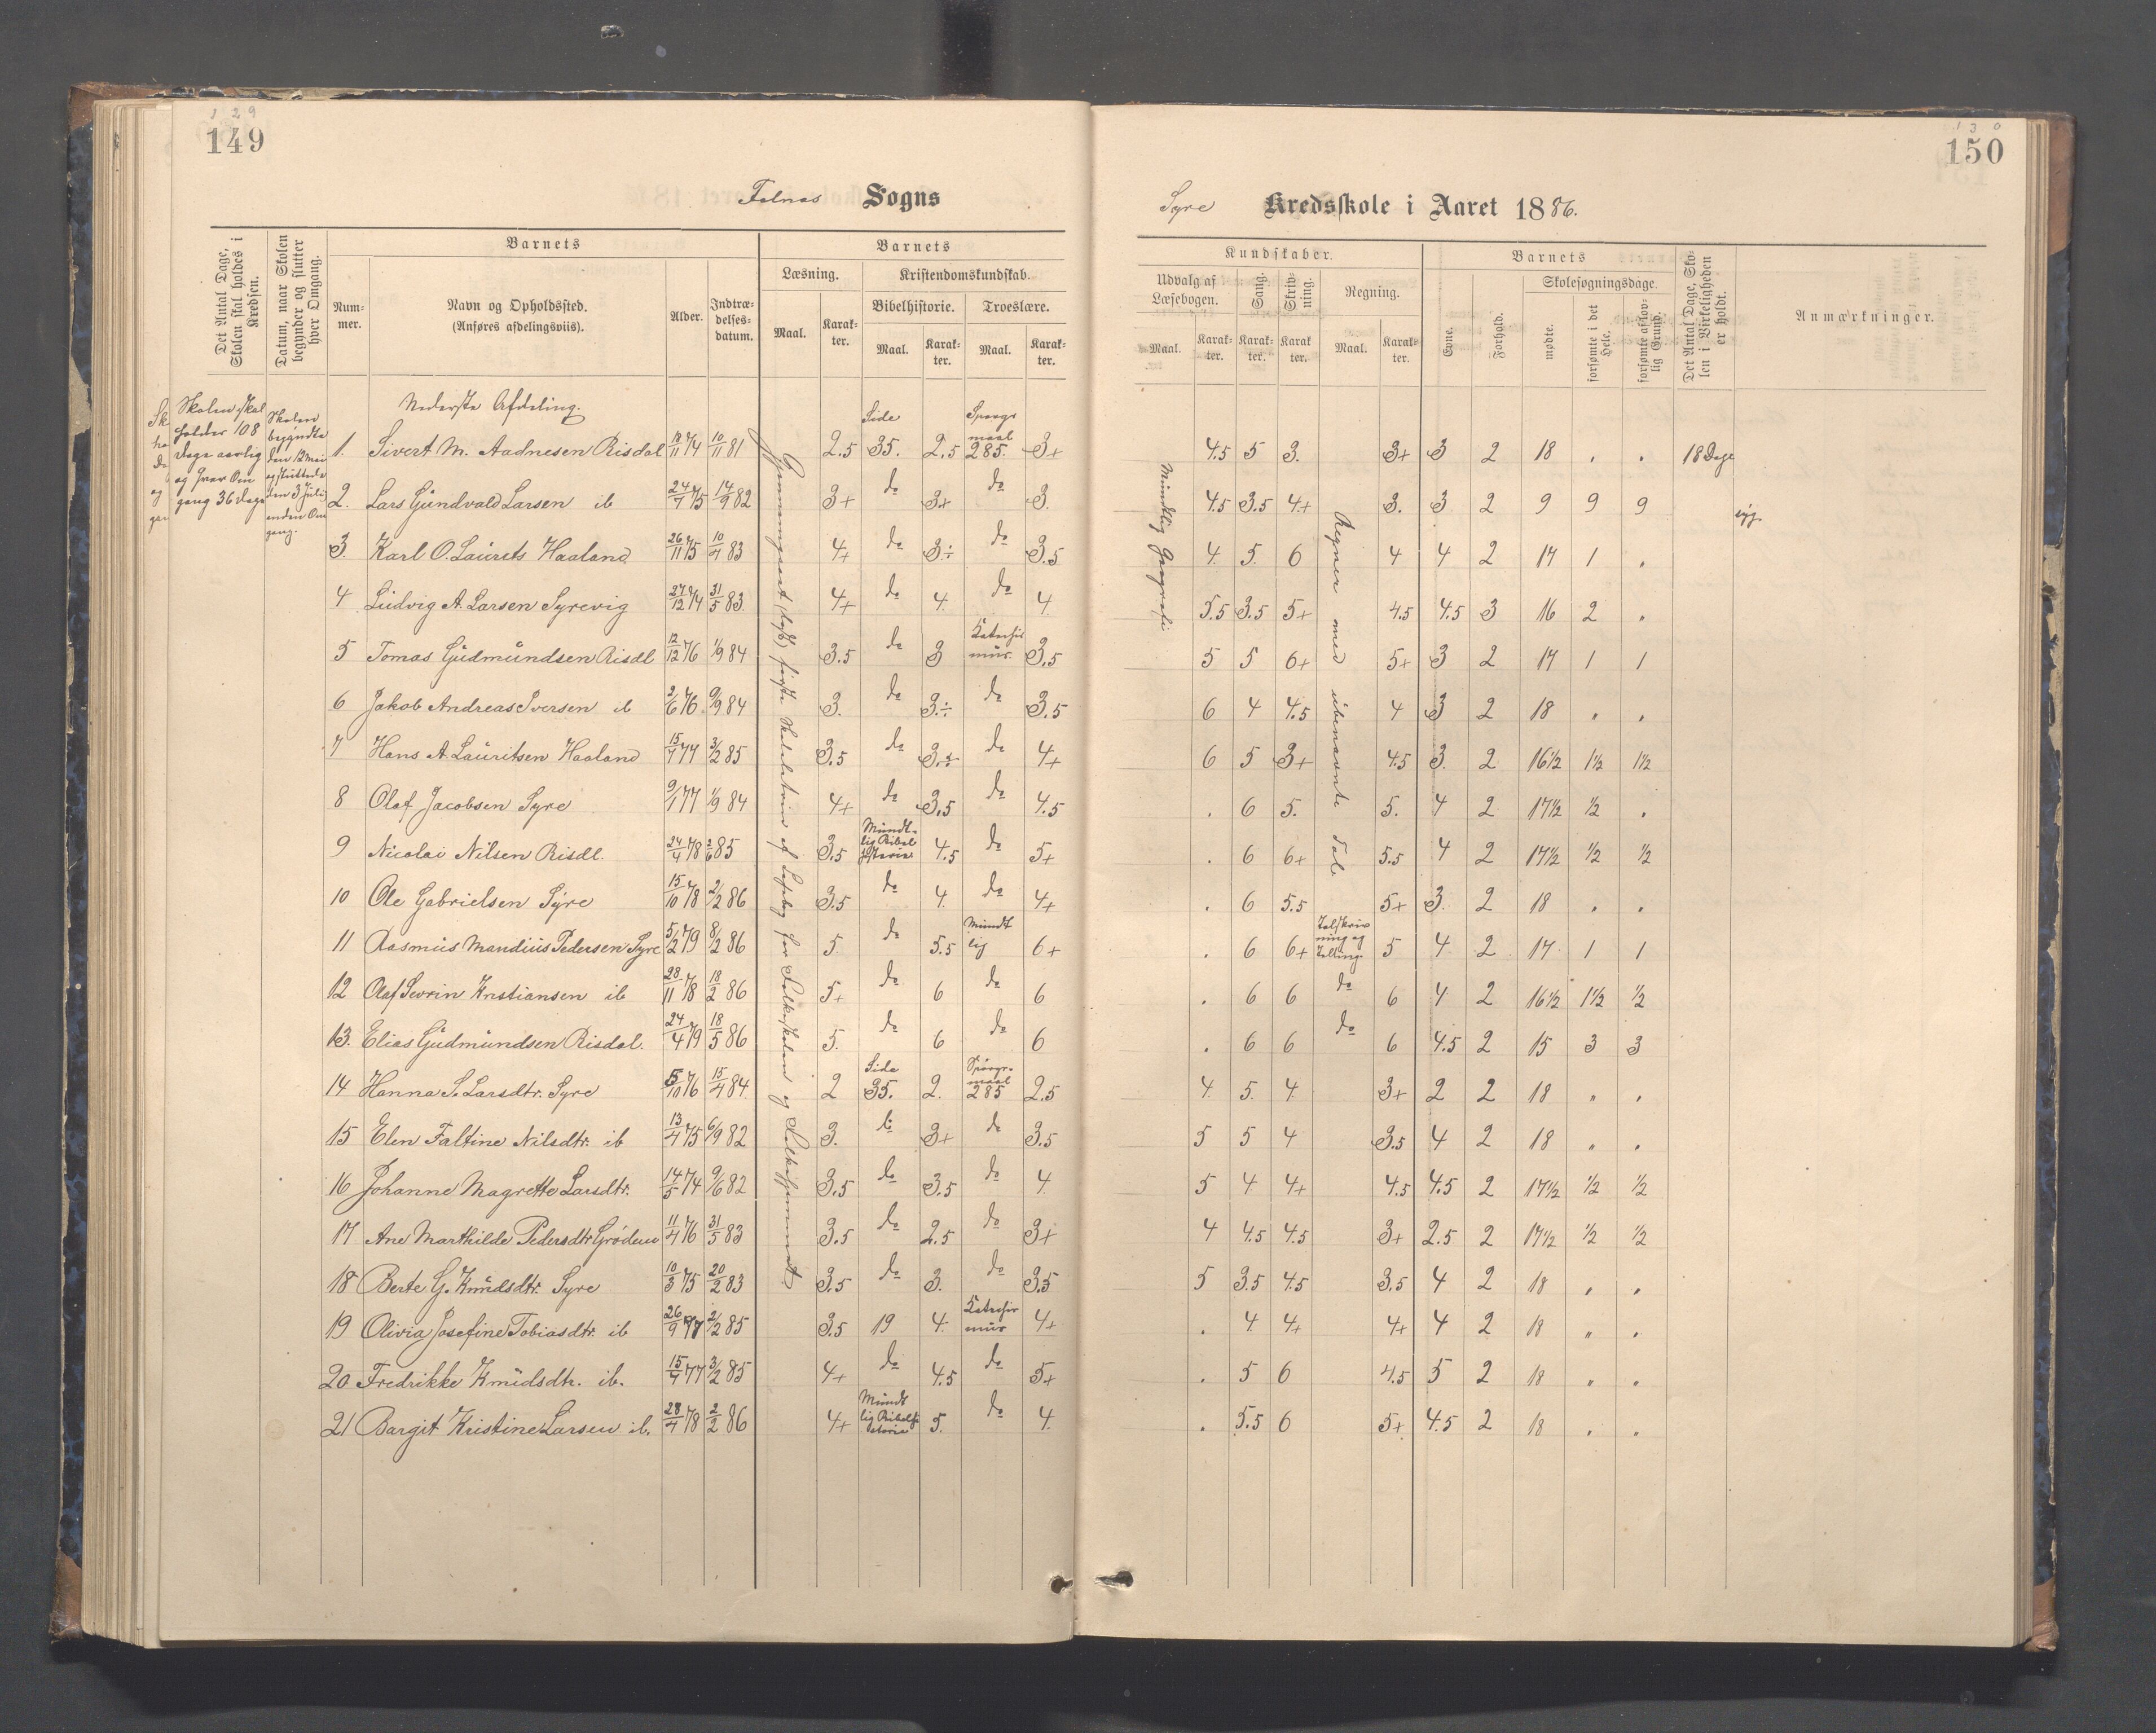 129
149
Falnes Sogns
Det Antal Dage, Skolen skal holdes i Kredsen.
Datum, naar Skolen begynder og slutter hver Omgang.
Barnets
Nummer.
Navn og Opholdssted.
(Anføres afdelingsviis).
Alder.
Indtrædelsesdatum.
Barnets
Læsning.
Kristendomskundskab.
Bibelhistorie.
Troeslære.
Maal.
Karakter.
Maal.
Karakter.
Maal.
Karakter.
Skolen skal holdes 108 Dage aarlig og hver Omgang 36 Dage
Skolen begyndte den 12 Mai og sluttede den 3 Juli anden Omgang.
Nederste Afdeling.
1. Sivert M. Aadnesen Risdal 18/11 74 10/11 81 2.5 Side 35. 2.5 Spørgsmaal 285. 3+
2. Lars Gundvald Larsen ib 24/7 75 14/9 82 3+ do 3+ do 3.
3. Karl O. Laurits Haaland 26/11 75 10/4 83 4+ do 3÷ do 3.5
4 Ludvig A. Larsen Syrevig 27/12 74 31/5 83 4+ do 4. do 4.
5 Tomas Gudmundsen Risdl 12/12 76 1/9 84 3.5 do 3 Katechismus 3,5
6 Jakob Andreas Iversen ib 2/6 76 9/9 84 3. do 3.÷ do 3.5
7 Hans A. Lauritsen Haaland 15/7 77 3/2 85 3.5 do 3.÷ do 4+
8 Olaf Jacobsen Syre 9/1 77 1/9 84 4+ do 3,5 do 4.5
9 Nicolai Nilsen Risdl. 24/4 78 2/6 85 3.5 Mundtlig Bibelhistorie 4.5 do 5+
10 Ole Gabrielsen Syre 15/10 78 2/2 86 3.5 do 4. do 4+
11 Rasmus Mandius Pedersen Syre 5/2 79 8/2 86 5 do 5.5 Mundtlig 6+
12 Olaf Sevrin Kristiansen ib 28/11 78 18/2 86 5+ do 6 do 6
13. Elias Gudmundsen Risdal. 24/4 79 18/5 86 5. do 6 do 6
14 Hanna S. Larsdtr. Syre 5/10 76 15/4 84 2 Side 35. 2. Spørgsmaal 285 2.5
15 Elen Faltine Nilsdtr. ib 13/4 75 6/9 82 3. do 3+ do 3.5
16 Johanne Magrette Larsdtr. 14/5 74 9/6 82 3.5 do 3.5 do 4
17 Ane Marthilde Pedersdtr Grødem 11/4 76 31/5 83 3.5 do 2.5 do 3+
18 Berte G. Knudsdtr. Syre 10/3 75 20/2 83 3.5 do 3. do 3.5
19 Olivia Josefine Tobiasdtr. ib 26/9 77 2/2 85 3.5 19 4. Katechismus 4+
20 Fredrikke Knudsdtr. ib. 15/7 77 3/2 85 4+ do 4.5 do 5+
21 Bargit Kristine Larsen ib. 28/4 78 2/2 86 4+ Mundtlig Bibelhistorie 5. do 4.
Gjennemgaaet første Skoletrin af Læsebog for Folkeskolen og Folkehjemmet
130
150
Syre Kredsskole i Aaret 1886.
Kundskaber.
Udvalg af Læsebogen.
Sang.
Skrivning.
Regning.
Maal.
Karakter.
Karakter.
Karakter.
Maal.
Karakter.
Barnets
Evne.
Forhold.
Skolesøgningsdage.
mødte.
forsømte i det Hele.
forsømte af lovlig Grund.
Det Antal Dage, Skolen i Virkeligheden er holdt.
Anmærkninger.
Mundtlig Geografi
Regner med ubenævnte Tal.
4.5 5 3. 3+ 3 2 18 " " 18 Dage
4.5 3.5 4+ 3. 3 2 9 9 9 syg.
4. 5. 6 4 4 2 17 1 "
5.5 3.5 5+ 4.5 4.5 3 16 2 "
5 5 6+ 5+ 3 2 17 1 1
6 4 4.5 4 3 2 18 " "
6 5 3+ 4.5 3. 2 16½ 1½ 1½
. 6 5. 5. 4 2 17½ ½ "
. 6 6+ 5.5 4 2 17½ ½ ½
. 6 5.5 5+ 3. 2 18 " "
. 6 6+ Talskrivning og Telling. 5 4 2 17 1 1
. 6 6 do 6 4 2 16½ 1½ ½
. 6 6 do 6 4.5 2 15 3 3
4. 5. 4. 3+ 2 2 18 " "
5 5 4 3.5 4 2 18 " "
5 4 4+ 4.5 4.5 2 17½ ½ ½
4 4.5 4.5 3+ 2.5 2 17½ ½ ½
5 3.5 4.5 3.5 4 2 18 " "
. 4 4+ 4+ 4 2 18 " "
. 5 6 4.5 5 2 18 " "
. 5.5 6 5+ 4.5 2 18 " "